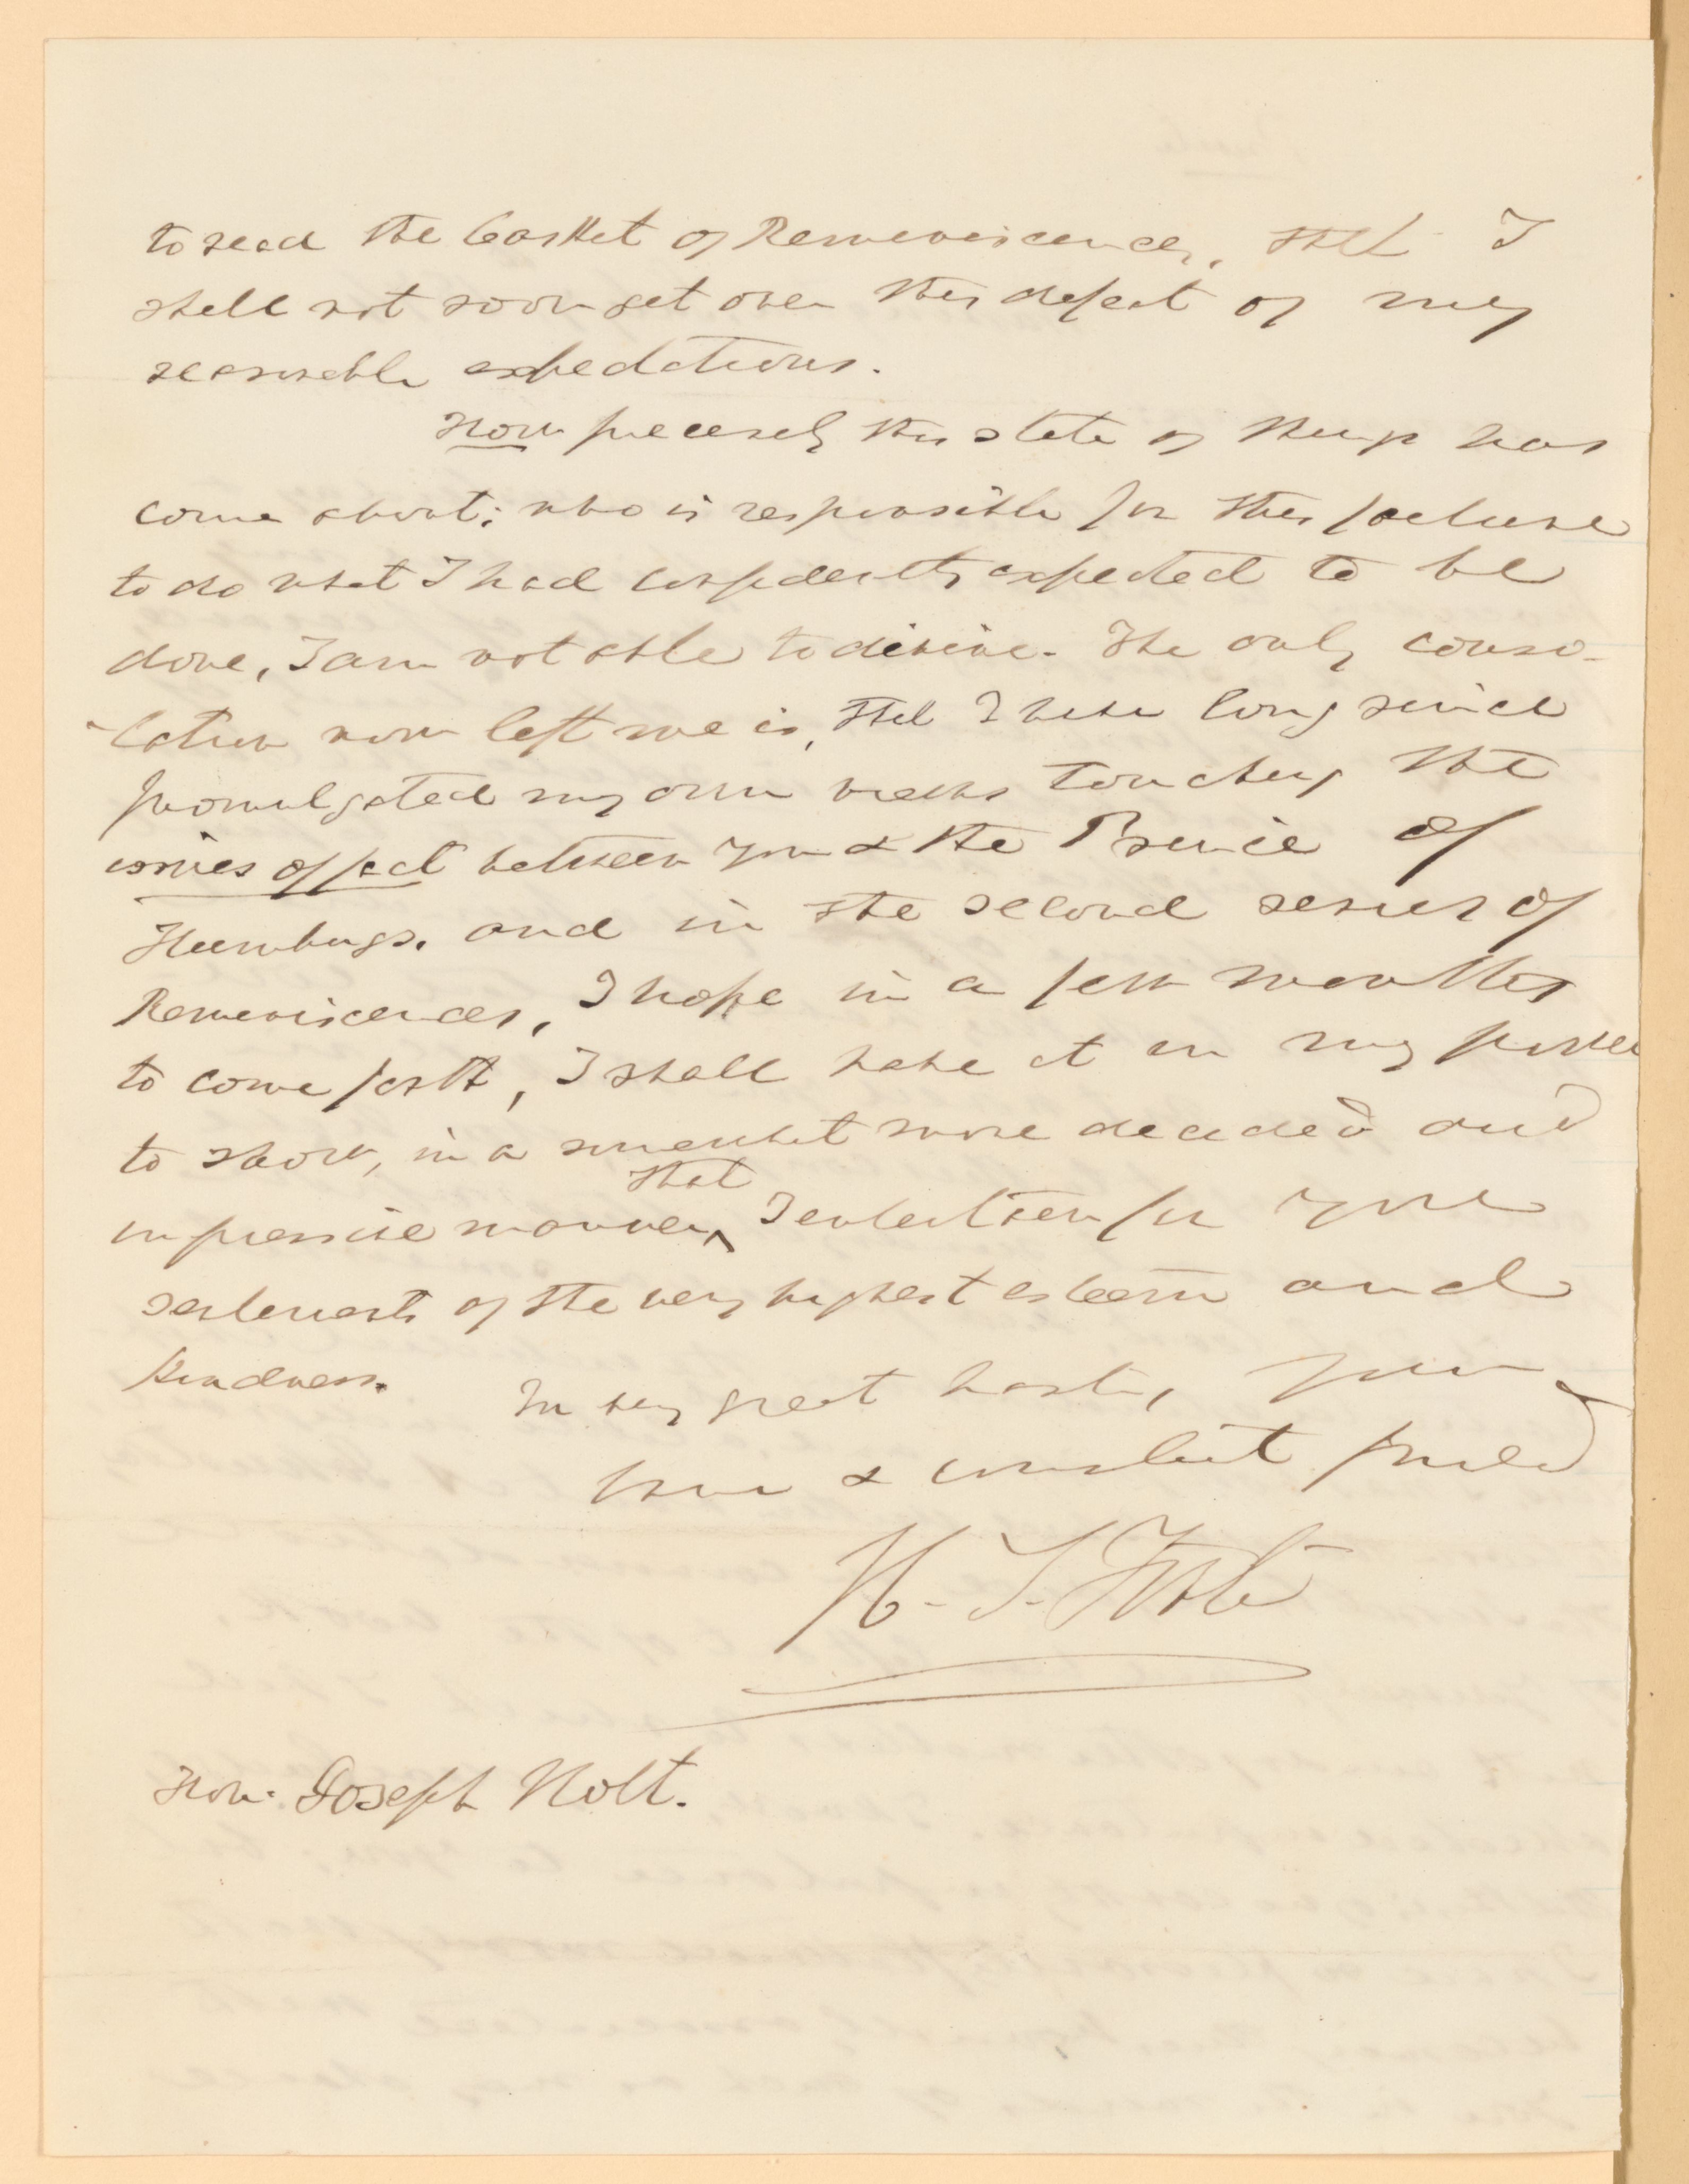 to read the Casket of Remeniscences, that I
shall not soon get over this defeat of my
reasonable expectations.
How precisely this state of things has
come about; who is responsible for this failure
to do what I had confidently expected to be
done, I am not able to divine. The only conso-
-lation now left me is, that I have long since
promulgated my own views touching the
issues of fact between you & the Prince of
Humbugs. and in the second series of
Remeniscences, I hope in a few months
to come forth, I shall have it in my power
to show, in a somewhat more decided and
that
impressive manner, I entertain for you
sentiments of the very highest esteem and
kindness.
In very great haste, your
true & constant friend
H. S. Foote
Hon. Joseph Holt.